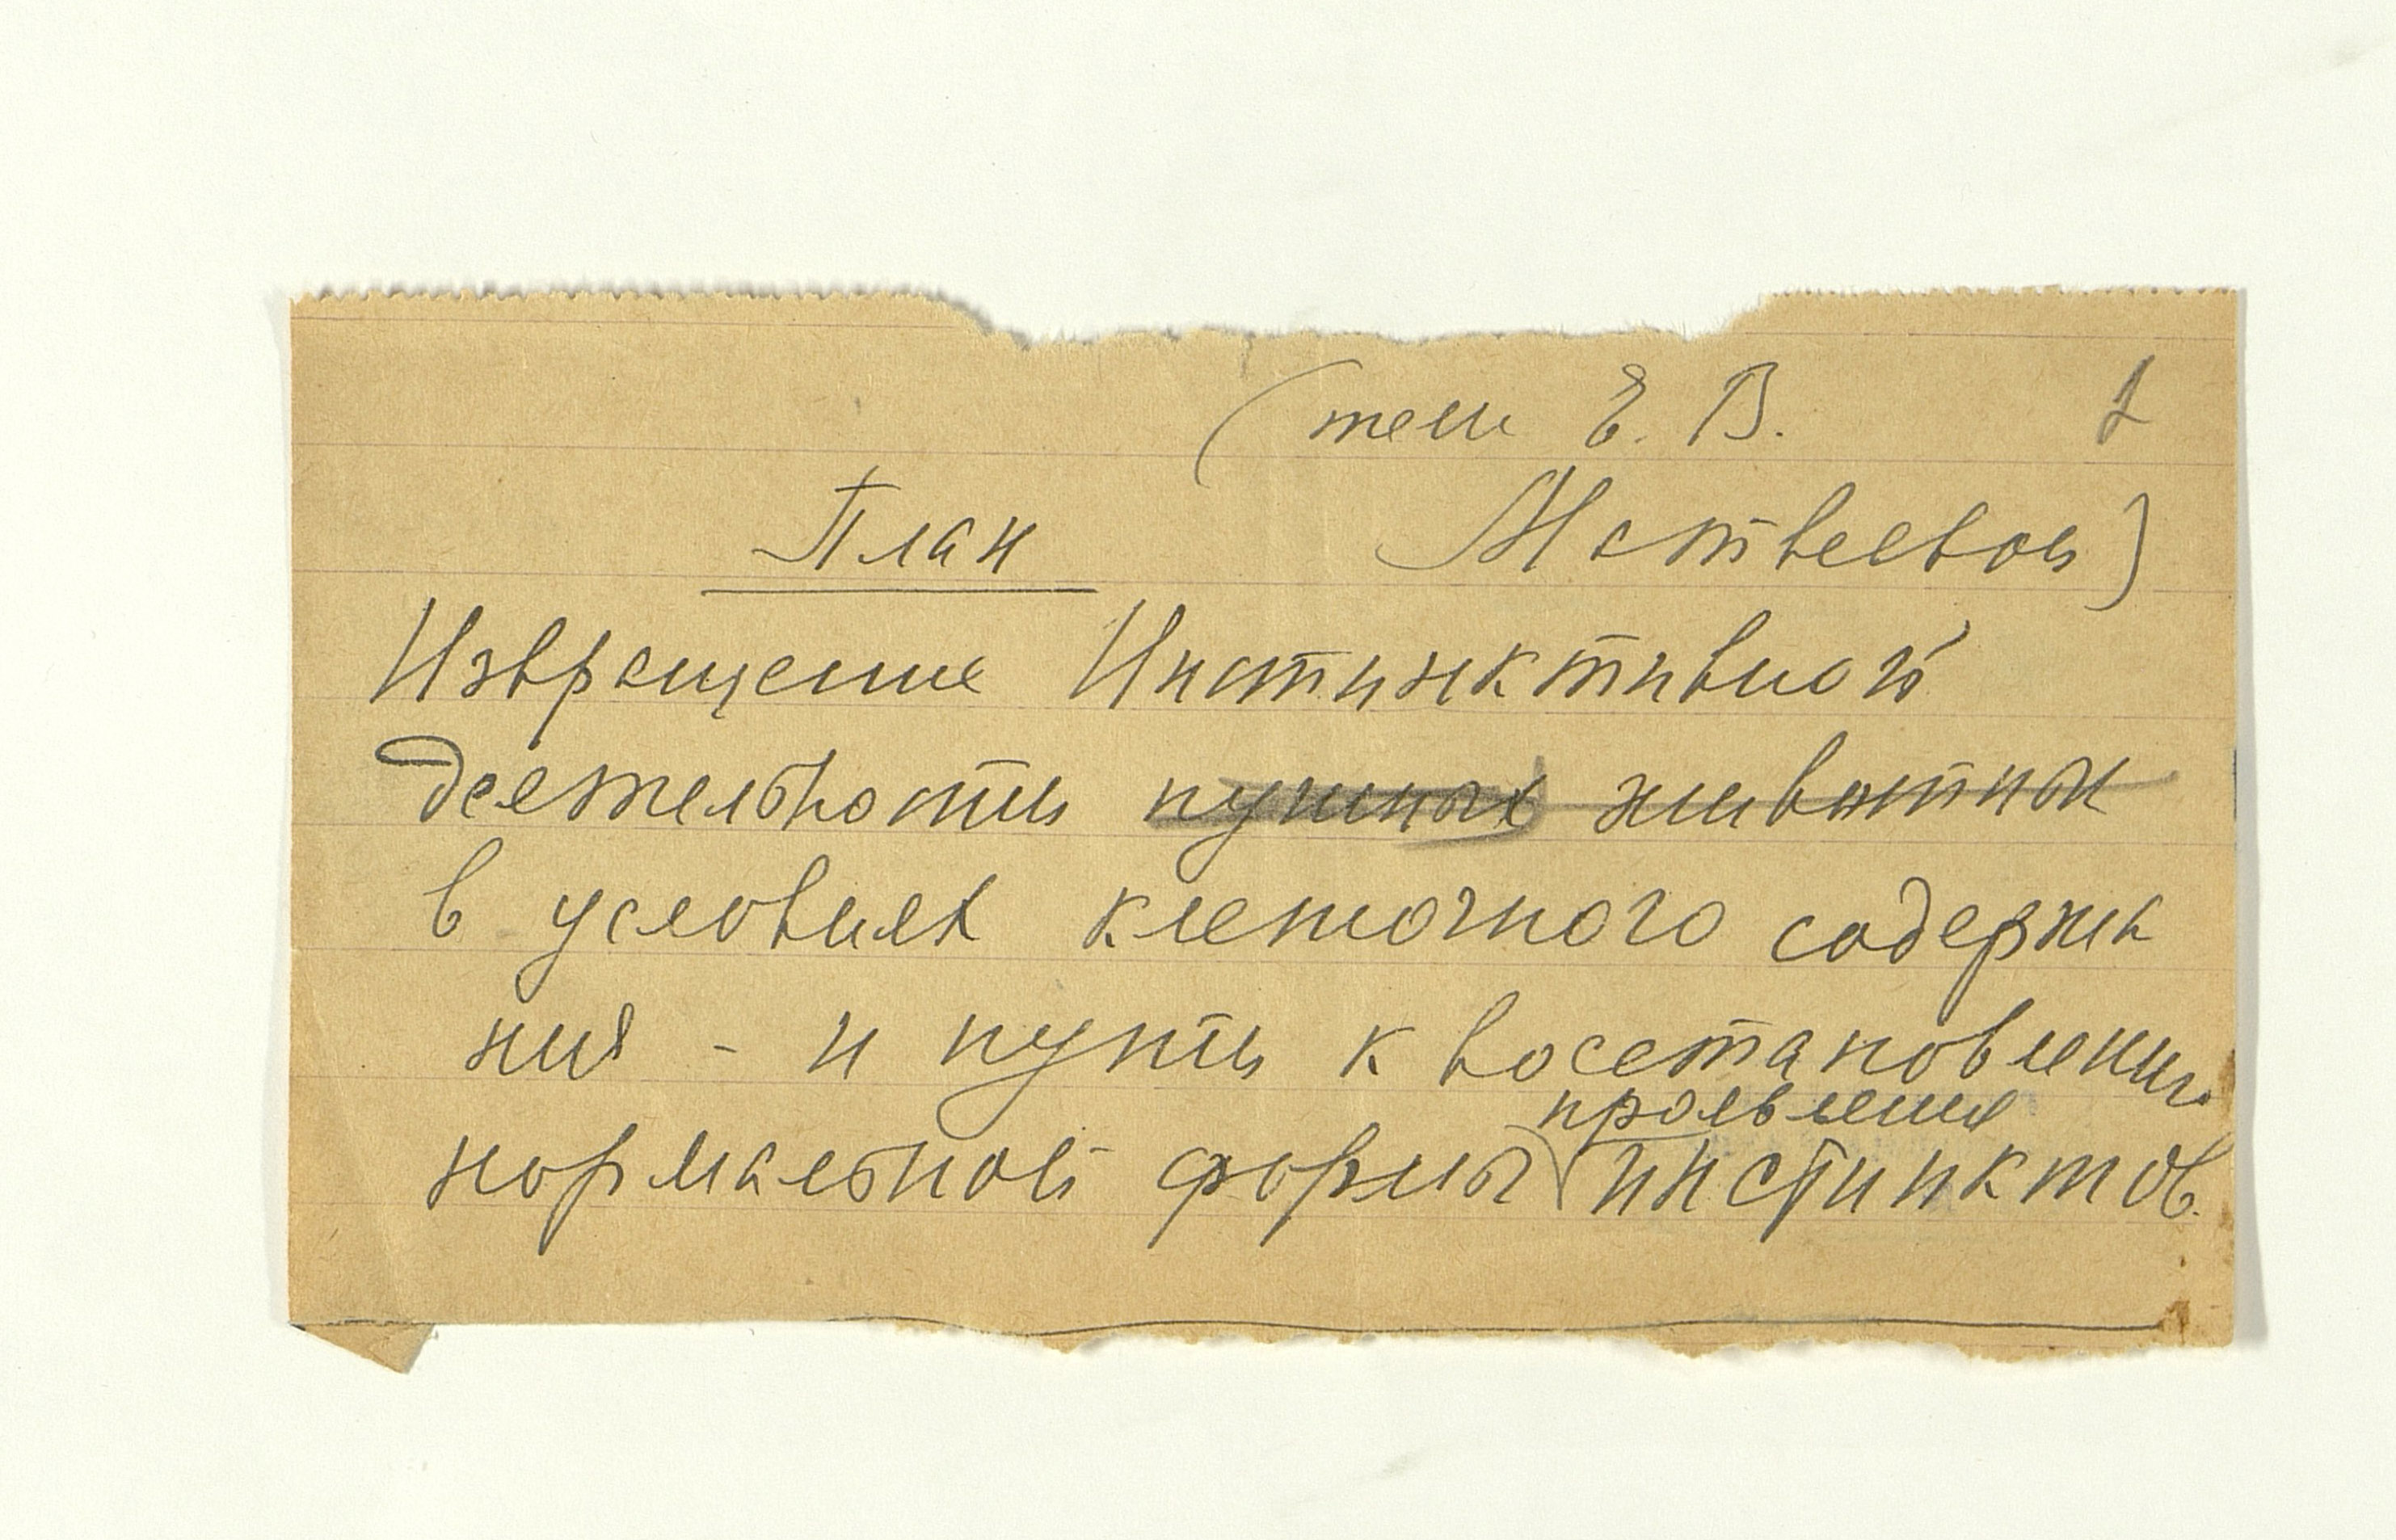 (темы Е. В. 1
План Матвеевой)
Извращение Инстинктивной
деятельности пушных животных
в условиях клеточного содержа
ния - и пути к восстановлению
проявления
нормальной формы инстинктов.